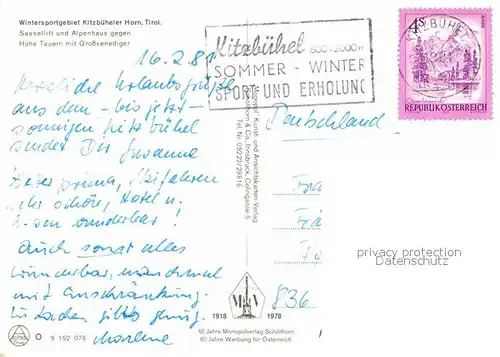 Wintersportgebiet Kitzbüheler Horn, Tirol.
Sessellift und Alpenhaus gegen
Hohe Tauern mit Großvenediger
16.2.81
Herzliche Urlaubsgrüße
aus dem - bis jetzt -
sonnigen Kitzbühel
sendet Dir Susanne
Wetter prima, Skifahren
sehr schön, Hotel u.
Essen wunderbar!
Auch sonst alles
wunderbar, manchmal
mit Einschränkung.
Zu lachen gibts genug.
9 152 078
Kitzbühel 800-2000 m
SOMMER - WINTER
SPORT UND ERHOLUNG
4S
KITZBÜHEL
REPUBLIK ÖSTERREICH
Deutschland
Kunst- und Ansichtskarten-Verlag
Schöllhorn & Co., Innsbruck,
Tel. Nr. 05222/29816
Frä
836
1918 1978
60 Jahre Monopolverlag Schöllhorn
60 Jahre Werbung für Österreich
privacy protection
Datenschutz